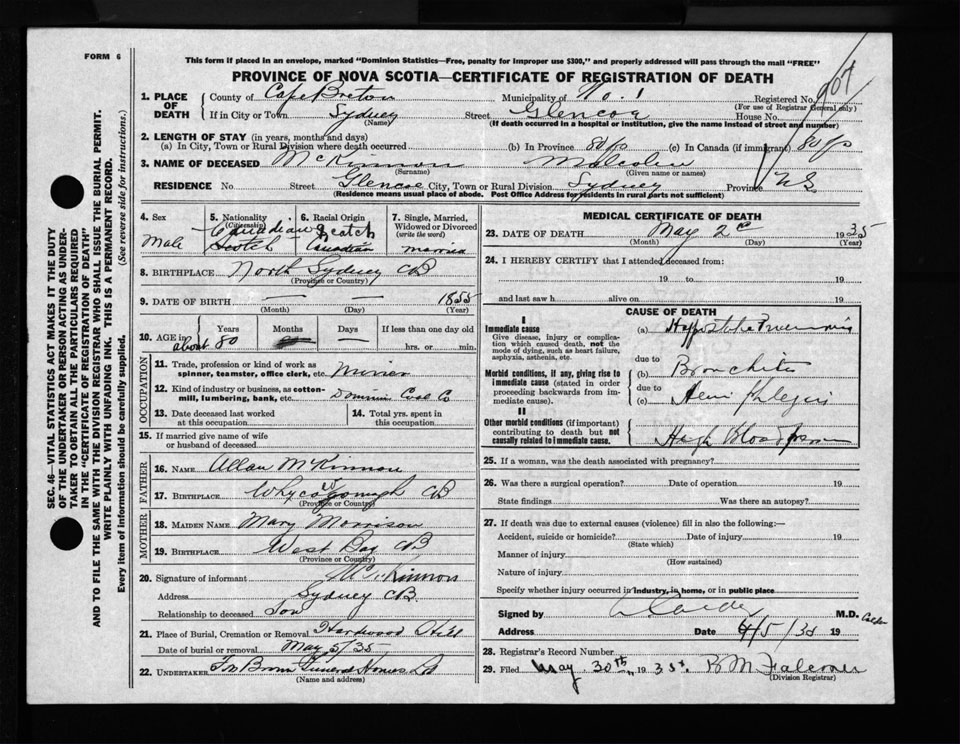 FORM 6
This form if placed in an envelope, marked "Dominion Statistics—Free, penalty for improper use $300," and properly addressed will pass through the mail "FREE"
PROVINCE OF NOVA SCOTIA—CERTIFICATE OF REGISTRATION OF DEATH
907
1. PLACE OF DEATH County of Cape Breton Municipality of No. 1 Registered No.
(For use of Registrar General only)
If in City or Town Sydney Street Glencoe House No.
(Name) (If death occurred in a hospital or institution, give the name instead of street and number)
2. LENGTH OF STAY (in years, months and days)
(a) In City, Town or Rural Division where death occurred (b) In Province 80 yrs (c) In Canada (if immigrant) 80 yrs
3. NAME OF DECEASED McKinnon Malcolm
(Surname) (Given name or names)
RESIDENCE No. Street Glencoe City, Town or Rural Division Sydney Province NS
(Residence means usual place of abode. Post Office Address by residents in rural parts not sufficient)
4. Sex Male
5. Nationality (Citizenship) Canadian Scotch
6. Racial Origin Scotch Canadian
7. Single, Married, Widowed or Divorced (write the word) married
8. BIRTHPLACE North Sydney CB
(Province or Country)
9. DATE OF BIRTH — — 1855
(Month) (Day) (Year)
10. AGE in about 80 Years Months Days — If less than one day old
hrs. or min.
OCCUPATION
11. Trade, profession or kind of work as spinner, teamster, office clerk, etc. Miner
12. Kind of industry or business, as cotton-mill, lumbering, bank, etc. Dominion Coal Co
13. Date deceased last worked at this occupation
14. Total yrs. spent in this occupation
15. If married give name of wife or husband of deceased
FATHER
16. NAME Allan McKinnon
17. BIRTHPLACE Whycocomagh CB
(Province or Country)
MOTHER
18. MAIDEN NAME Mary Morrison
19. BIRTHPLACE West Bay CB
(Province or Country)
20. Signature of informant McKinnon
Address Sydney CB.
Relationship to deceased Son
21. Place of Burial, Cremation or Removal Hardwood Hill
Date of burial or removal May 5/35
22. UNDERTAKER Funeral Homes Ltd
(Name and address)
MEDICAL CERTIFICATE OF DEATH
23. DATE OF DEATH May 2 1935
(Month) (Day) (Year)
24. I HEREBY CERTIFY that I attended deceased from:
19 to 19
and last saw h alive on 19
CAUSE OF DEATH
I
Immediate cause
Give disease, injury or complication which caused death, not the mode of dying, such as heart failure, asphyxia, asthenia, etc.
(a) Hypostatic Pneumonia
due to
Morbid conditions, if any, giving rise to immediate cause (stated in order proceeding backwards from immediate cause).
(b) Bronchitis
due to
(c) Hemiplegia
II
Other morbid conditions (if important) contributing to death but not causally related to immediate cause.
High Blood Pressure
25. If a woman, was the death associated with pregnancy?
26. Was there a surgical operation? Date of operation 19
State findings Was there an autopsy?
27. If death was due to external causes (violence) fill in also the following:—
Accident, suicide or homicide? Date of injury 19
(State which)
Manner of injury
(How sustained)
Nature of injury
Specify whether injury occurred in industry, in home, or in public place
Signed by Calder M.D. Calder
Address Date 4/5/35 19
28. Registrar's Record Number
29. Filed May 30th, 1935. B M Falconer
(Division Registrar)
SEC. 46—VITAL STATISTICS ACT MAKES IT THE DUTY
OF THE UNDERTAKER OR PERSON ACTING AS UNDERTAKER TO OBTAIN ALL THE PARTICULARS REQUIRED
IN THE "CERTIFICATE OF REGISTRATION OF DEATH"
AND TO FILE THE SAME WITH THE DIVISION REGISTRAR WHO SHALL ISSUE THE BURIAL PERMIT.
WRITE PLAINLY WITH UNFADING INK. THIS IS A PERMANENT RECORD.
Every item of information should be carefully supplied. (See reverse side for instructions.)